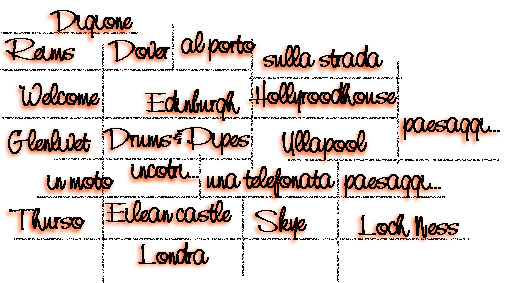 Digione
Reims Dover al porto sulla strada
Welcome Edinburgh Hollyroodhouse
Glenlivet Drums & Pipes Ullapool paesaggi...
in moto incotri... una telefonata paesaggi...
Thurso Eilean castle Skye Loch Ness
Londra